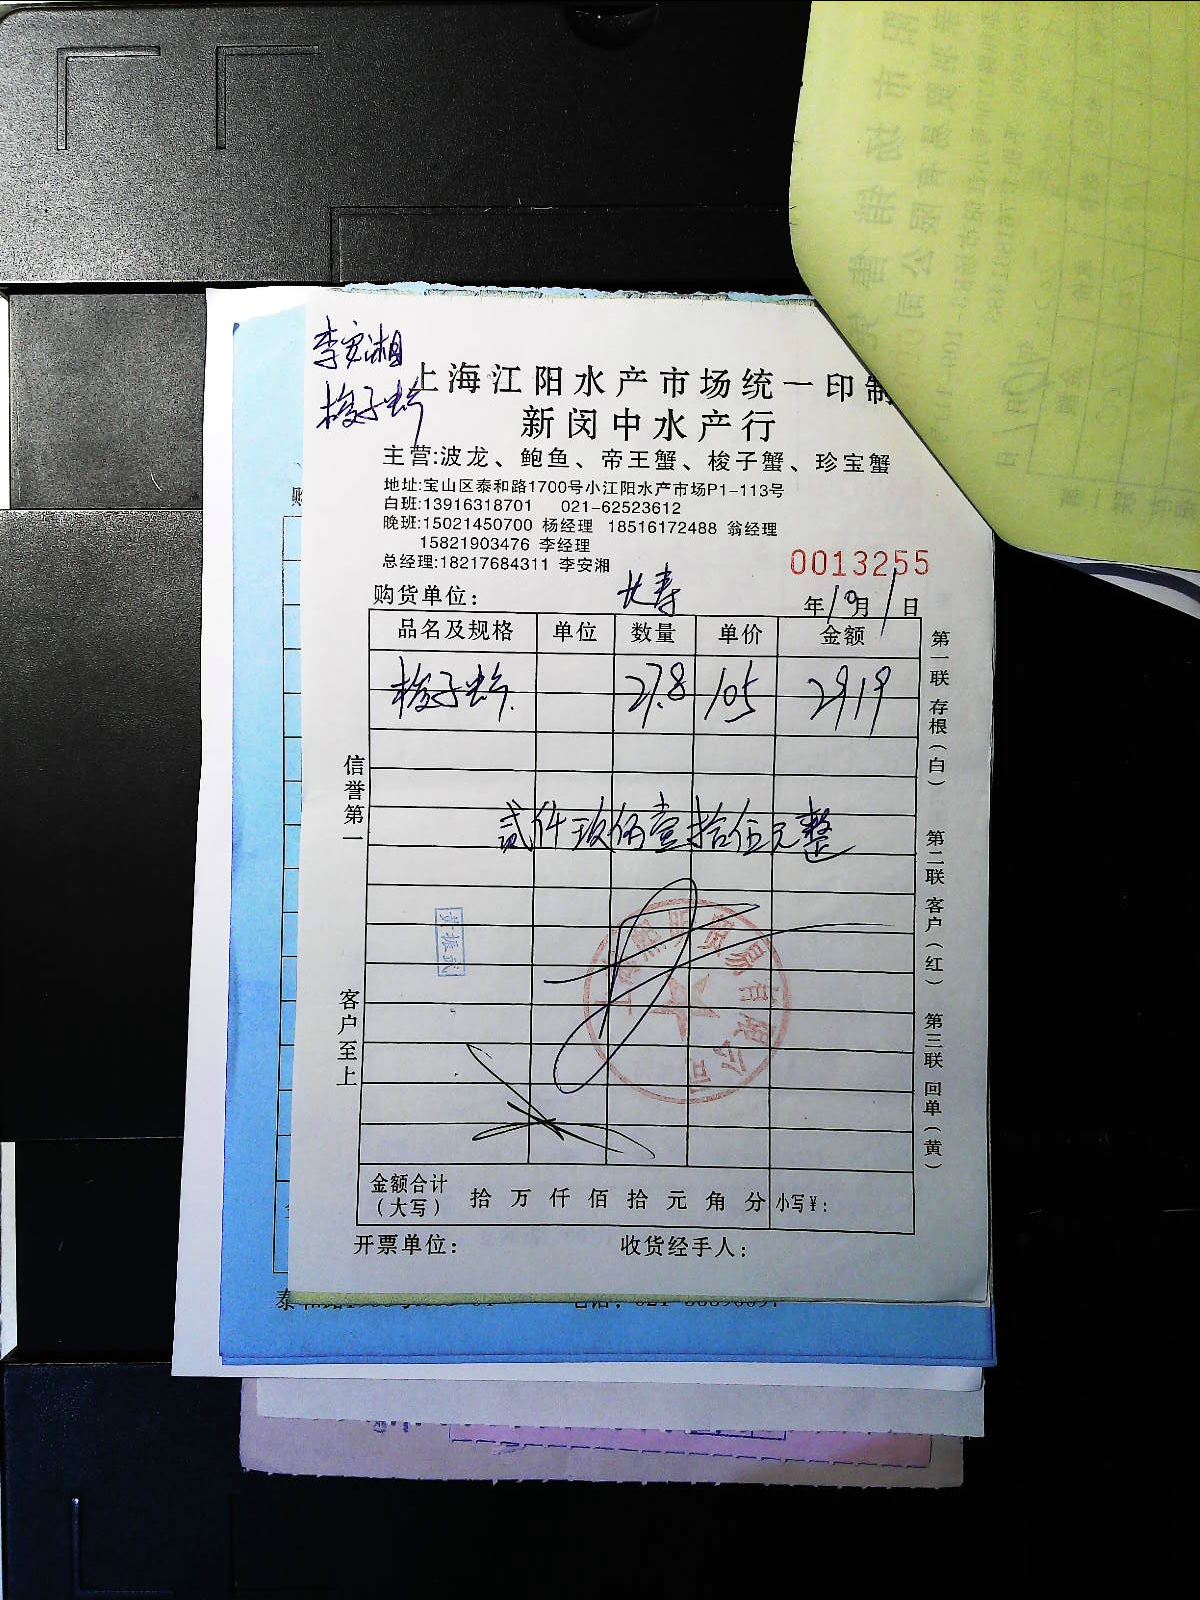 李安湘
梭子蟹
上海江阳水产市场统一印制
新闵中水产行
主营:波龙、鲍鱼、帝王蟹、梭子蟹、珍宝蟹
地址:宝山区泰和路1700号小江阳水产市场P1-113号
白班:13916318701 021-62523612
晚班:15021450700 杨经理 18516172488 翁经理
15821903476 李经理
总经理:18217684311 李安湘
0013255
购货单位: 长寿 年10月1日
品名及规格 单位 数量 单价 金额
梭子蟹 27.8 105 2919
贰仟玖佰壹拾伍元整
信誉第一
客户至上
黄振武
贸易有限公司
第一联 存根(白)
第二联 客户(红)
第三联 回单(黄)
金额合计(大写) 拾 万 仟 佰 拾 元 角 分 小写¥:
开票单位: 收货经手人: